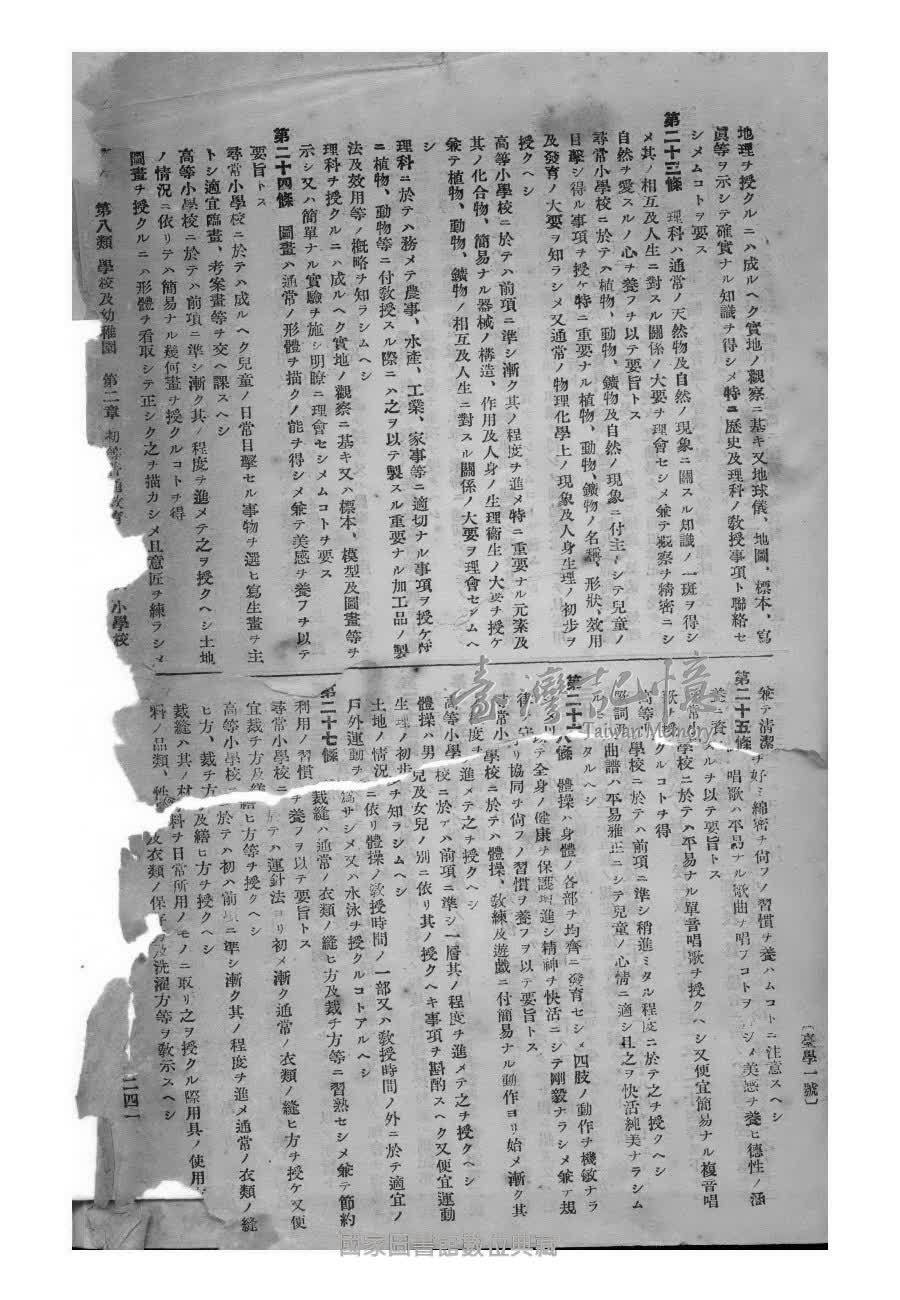 地理ヲ授クルニハ成ルヘク實地ノ觀察ニ基キ又地球儀、地圖、標本、寫
眞等ヲ示シテ確實ナル知識ヲ得シメ特ニ歷史及理科ノ敎授事項ト聯絡セ
シメムコトヲ要ス
第二十三條 理科ハ通常ノ天然物及自然ノ現象ニ關スル知識ノ一斑ヲ得シ
メ其ノ相互及人生ニ對スル關係ノ大要ヲ理會セシメ兼テ觀察ヲ精密ニシ
自然ヲ愛スルノ心ヲ養フヲ以テ要旨トス
尋常小學校ニ於テハ植物、動物、鑛物及自然ノ現象ニ付主トシテ兒童ノ
目擊シ得ル事項ヲ授ケ特ニ重要ナル植物、動物、鑛物ノ名稱、形狀、效用
及發育ノ大要ヲ知ラシメ又通常ノ物理化學上ノ現象及人身生理ノ初步ヲ
授クヘシ
高等小學校ニ於テハ前項ニ準シ漸ク其ノ程度ヲ進メ特ニ重要ナル元素及
其ノ化合物、簡易ナル器械ノ構造、作用及人身ノ生理衞生ノ大要ヲ授ケ
兼テ植物、動物、鑛物ノ相互及人生ニ對スル關係ノ大要ヲ理會セシムヘ
シ
理科ニ於テハ務メテ農事、水產、工業、家事等ニ適切ナル事項ヲ授ケ特
ニ植物、動物等ニ付敎授スル際ニハ之ヲ以テ製スル重要ナル加工品ノ製
法及效用等ノ概略ヲ知ラシムヘシ
理科ヲ授クルニハ成ルヘク實地ノ觀察ニ基キ又ハ標本、模型及圖畫等ヲ
示シ又ハ簡單ナル實驗ヲ施シ明瞭ニ理會セシメムコトヲ要ス
第二十四條 圖畫ハ通常ノ形體ヲ描クノ能ヲ得シメ兼テ美感ヲ養フヲ以テ
要旨トス
尋常小學校ニ於テハ成ルヘク兒童ノ日常目擊セル事物ヲ選ヒ寫生畫ヲ主
トシ適宜臨畫、考案畫等ヲ交ヘ課スヘシ
高等小學校ニ於テハ前項ニ準シ漸ク其ノ程度ヲ進メテ之ヲ授クヘシ土地
ノ情況ニ依リテハ簡易ナル幾何畫ヲ授クルコトヲ得
圖畫ヲ授クルニハ形體ヲ看取シテ正シク之ヲ描カシメ且意匠ヲ練ラシメ
第八類 學校及幼稚園 第二章 初等普通敎育 小學校
兼テ淸潔ヲ好ミ綿密ヲ尙フノ習慣ヲ養ハムコトニ注意スヘシ
第二十五條 唱歌ハ平易ナル歌曲ヲ唱フコトヲ シメ美感ヲ養ヒ德性ノ涵
養ニ資スルヲ以テ要旨トス
常 學校ニ於テハ平易ナル單音唱歌ヲ授クヘシ又便宜簡易ナル複音唱
歌ヲ授クルコトヲ得
高等小學校ニ於テハ前項ニ準シ稍進ミタル程度ニ於テ之ヲ授クヘシ
歌詞 曲譜ハ平易雅正ニシテ兒童ノ心情ニ適シ且之ヲ快活純美ナラシム
ル タルヘシ
第二十六條 體操ハ身體ノ各部ヲ均齊ニ發育セシメ四肢ノ動作ヲ機敏ナラ
テ全身ノ健康ヲ保護增進シ精神ヲ快活ニシテ剛毅ナラシメ兼テ規
律 守リ協同ヲ尙フノ習慣ヲ養フヲ以テ要旨トス
尋常小學校ニ於テハ體操、敎練及遊戲ニ付簡易ナル動作ヨリ始メ漸ク其
度ヲ進メテ之ヲ授クヘシ
高等小學校ニ於テハ前項ニ準シ一層其ノ程度ヲ進メテ之ヲ授クヘシ
體操ハ男兒及女兒ノ別ニ依リ其ノ授クヘキ事項ヲ斟酌スヘク又便宜運動
生理ノ初步ヲ知ラシムヘシ
土地ノ情況ニ依リ體操ノ敎授時間ノ一部又ハ敎授時間ノ外ニ於テ適宜ノ
戶外運動ヲ爲サシメ又ハ水泳ヲ授クルコトアルヘシ
第二十七條 裁縫ハ通常ノ衣類ノ縫ヒ方及裁チ方等ニ習熟セシメ兼テ節約
利用ノ習慣ヲ養フヲ以テ要旨トス
尋常小學校ニ於テハ運針法ヨリ初メ漸ク通常ノ衣類ノ縫ヒ方ヲ授ケ又便
宜裁チ方及繕ヒ方等ヲ授クヘシ
高等小學校ニ於テハ初ハ前項ニ準シ漸ク其ノ程度ヲ進メ通常ノ衣類ノ縫
ヒ方、裁チ方及繕ヒ方ヲ授クヘシ
裁縫ハ其ノ材料ヲ日常所用ノモノニ取リ之ヲ授クル際用具ノ使用
料ノ品類、性 及衣類ノ保存及洗濯方等ヲ敎示スヘシ
〔臺學一號〕
二四一
臺灣記憶
Taiwan Memory
國家圖書館數位典藏